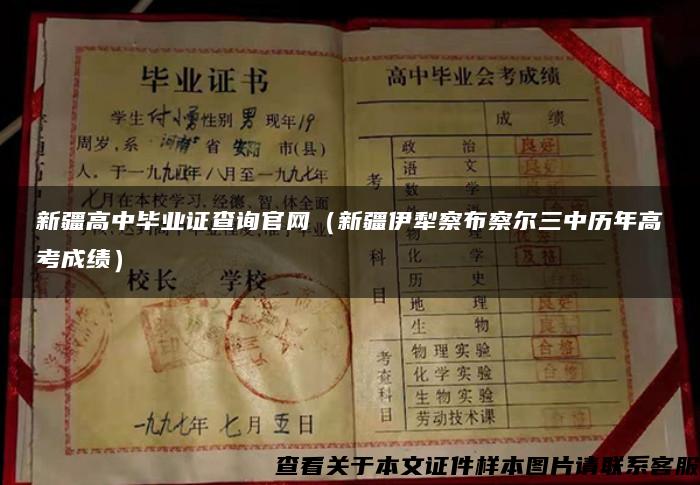 毕业证书
学生付小勇性别男现年19
周岁,系河南省安阳市(县)
人,于一九九四年八月至一九九七年
七月在本校学习,经德、智、体全面
新疆高中毕业证查询官网(新疆伊犁察布察尔三中历年高
考成绩)
校长 学校
一九九七年七月五日
高中毕业会考成绩
成绩
考
科
目
政治 良好
语文 良好
数学
化学 及格
历史
地理 良好
生物 良好
考
查
科
目
物理实验 合格
化学实验 合格
生物实验
劳动技术课 合格
查看关于本文证件样本图片请联系客服